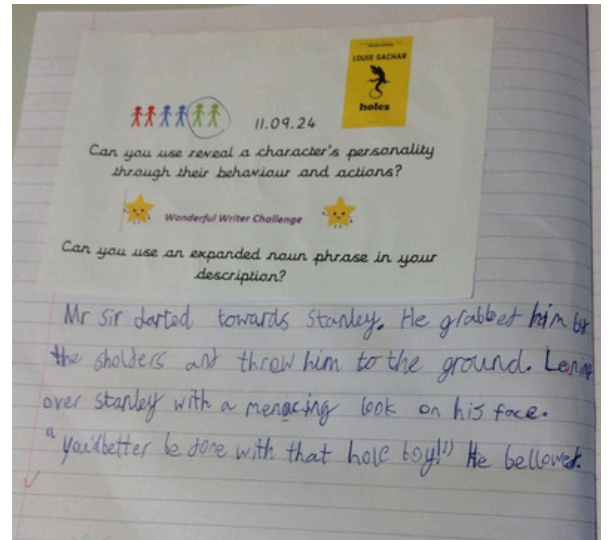 LOUIS SACHAR
holes
11.09.24
Can you use reveal a character's personality
through their behaviour and actions?
Wonderful Writer Challenge
Can you use an expanded noun phrase in your
description?
Mr Sir darted towards Stanley. He grabbed him by
the sholders and throw him to the ground. Lening
over stanley with a menacing look on his face.
"you'dbetter be done with that hole boy!" He bellowed.